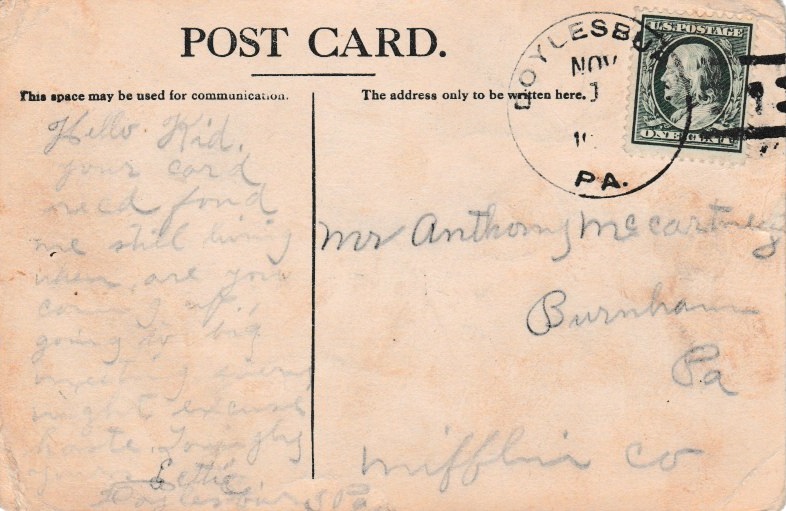 POST CARD.
This space may be used for communication.
Hello Kid,
your card
recd fond
me still living
when, are you
coming up,
going to big
meeting every
night excuse
haste, Lovingly
Yours Ettie
Doylesburg Pa
The address only to be written here.
DOYLESBU
NOV
1
PA.
U.S. POSTAGE
ONE CENT
Mr Anthony McCartney
Burnham
Pa
Mifflin co